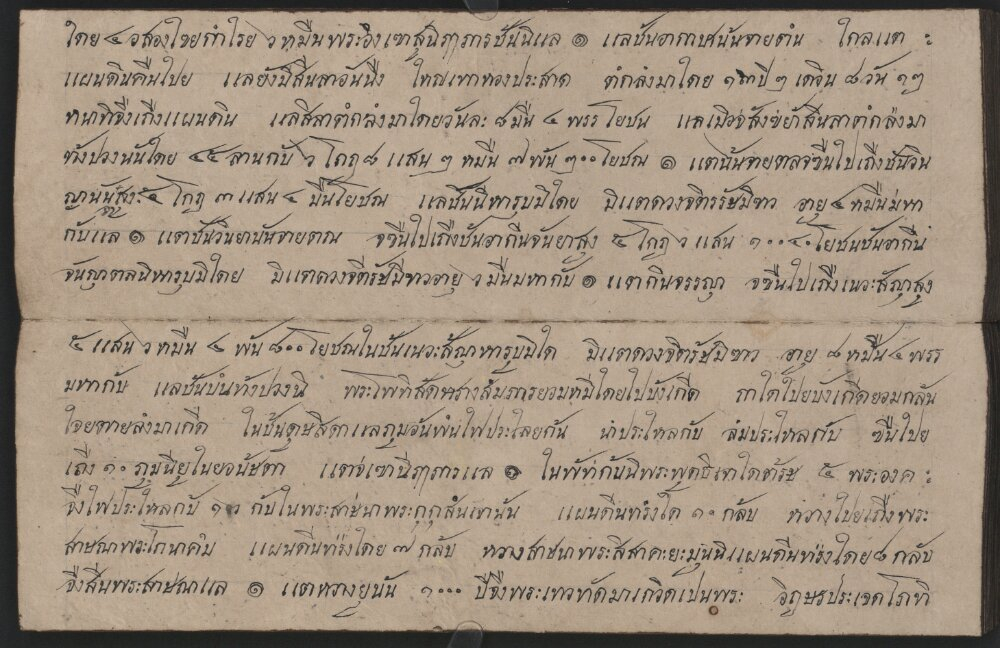 โดย ๔ ๖สองไจยกำไรย ๖ หมืนพระอิงเขาสุนิรภารชันนิแล ๑ แลชันอากาษนันจายตำน ไกลแต :
แผนดีนคืนไปย แลยังมีสีนลาอันนืง ใหญเทาทองประสาด ตํกลํงมาโดย ๑๓ ปี ๆ เดิวิน ๘ วัน ๑ๆ
หนาทิจืงเถืงแผนดิน แลสีลาตํกลํงมาโดยวันละ ๘ มืน ๔ พรรโยชน แลเมิวจัสังขยำสีนลาตํกลํงมา
ทังปวงนันโดย ๔๕ ลานกับ ๖ โกฏ ๘ แสน ๆ หมืน ๗ พัน ๆ๐๐ โยชณ ๑ แตนันจายตลจขืนไปเถืงชันวิน
ญานนันสูง ๕ โกฏ ๓ แสน ๔ มืนโยชณ แลชันนิหารูบมิโดย มิแตดวงจิตรรษัมิขาว อายุ ๔ หมืนมหา
กับแล ๑ แตชันวินยานันจายตณ จขืนไปเถืงชันอากืนจันยาสูง ๕ โกฏ ๖ แสน ๑๐๐๔๐ โยชนชันอากืน
จันญาตลนิหารูบมิโดย มิแตดวงจิตรัษมีขาวอายุ ๖ มืนมหากับ ๑ แตกินจรรญา จขืนไปเถืงเนวะสัญาสูง
๕ แสน ๖ หมืน ๔ พัน ๘๐๐ โยชณในชันเนวะสัญาหารูบมิได มิแตดวงจิตรัษมิขาว อายุ ๘ หมืน ๔ พรร
มหากับ แลชันบํนทังปวงนิ พระโพทิสัดหรางสํมภารยอมหมิโดยไปบังเกืด ถาใดไปยบังเกีดยอมกลัน
ใจยตายลํงมาเกีด ในชันดุษสิดาแลภูมอันพํนไฟประไลยกัน นำประไหลกับ ลํมประไหลกับ ขืนไปย
เถีง ๑๐ ภูมนียูในยอนัษตา แตจ่เขานีรภารแล ๑ ในพัททกับนิพระพุทธิเจาไดตรัษ ๕ พระองค :
จืงไฟประไหลกับ ๑๖ กับในพระสาษ่นาพระกุกุสํนเทานัน แผนดีนทรํงได ๑๐ กลับ หวางไปยเถืงพระ
สาษณาพระโกนาคํม แผนดีนทรํงโดย ๗ กลับ หวางสาษนาพระสีสาคะยะมุนนิแผนดีนทรํงโดย ๘ กลับ
จืงสีนพระสาษณาแล ๑ แตหวางยูนัน ๑๐๐๐ ปีจืงพระเทวทัดมาเกวิดเปนพระ อิฏษรประเจดโภทิ